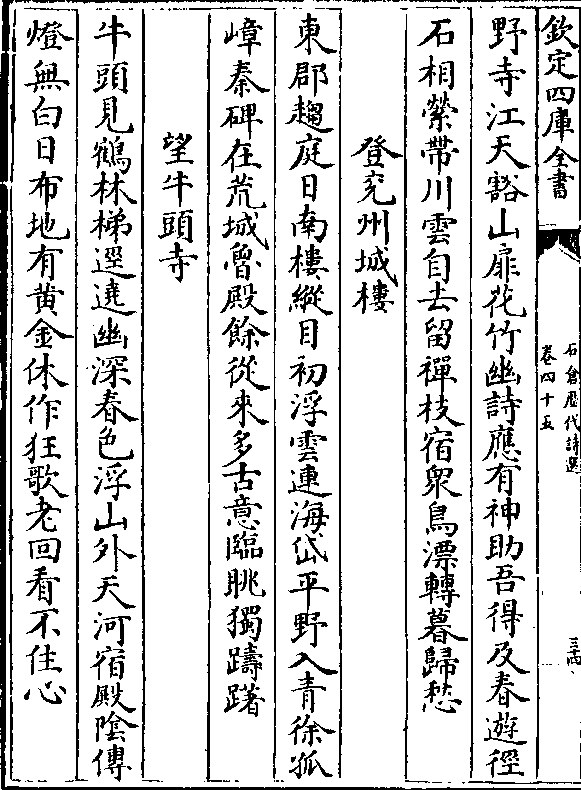 欽定四庫全書
石倉歷代詩選
卷四十五
三十四
野寺江天豁山扉花竹幽詩應有神助吾得及春遊徑
石相縈帶川雲自去留禪枝宿衆鳥漂轉暮歸愁
登兖州城樓
東郡趨庭日南樓縱目初浮雲連海岱平野入青徐孤
嶂秦碑在荒城魯殿餘從來多古意臨眺獨躊躇
望牛頭寺
牛頭見鶴林梯逕遶幽深春色浮山外天河宿殿陰傳
燈無白日布地有黄金休作狂歌老回看不住心